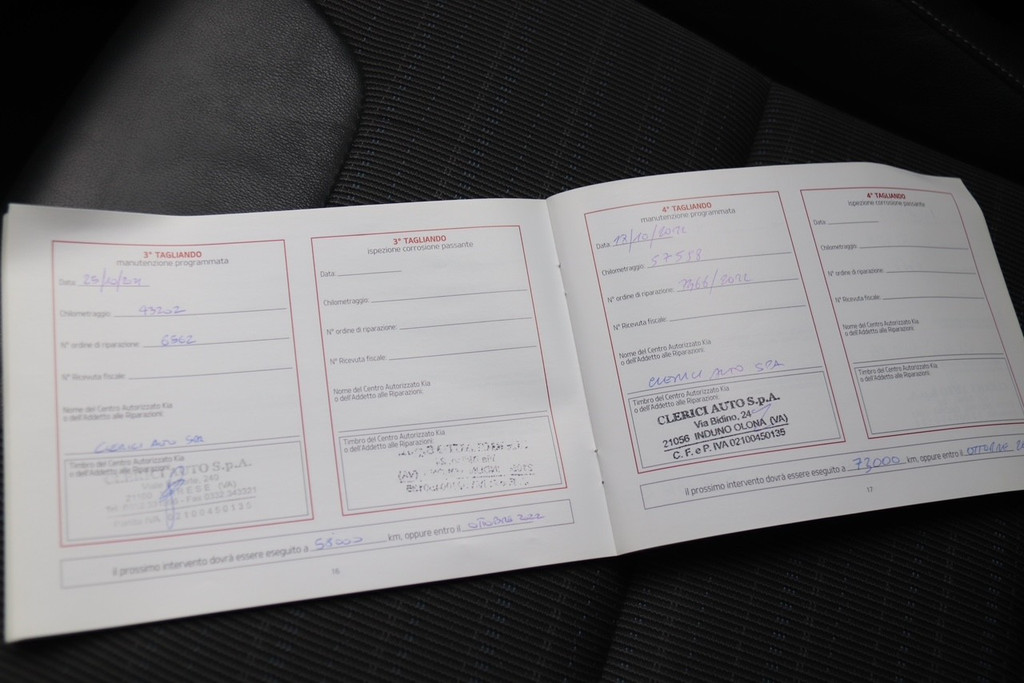 3° TAGLIANDO
manutenzione programmata
Data: 25/10/2021
Chilometraggio: 43202
N° ordine di riparazione: 6562
N° Ricevuta fiscale:
Nome del Centro Autorizzato Kia
o dell'Addetto alle Riparazioni:
CLERICI AUTO SPA
Timbro del Centro Autorizzato Kia
o dell'Addetto alle Riparazioni:
CLERICI AUTO S.p.A.
02100450135
3° TAGLIANDO
ispezione corrosione passante
Data:
Chilometraggio:
N° ordine di riparazione:
N° Ricevuta fiscale:
Nome del Centro Autorizzato Kia
o dell'Addetto alle Riparazioni:
Timbro del Centro Autorizzato Kia
o dell'Addetto alle Riparazioni:
il prossimo intervento dovrà essere eseguito a 58000 km, oppure entro il OTTOBRE 2022
16
4° TAGLIANDO
manutenzione programmata
Data: 17/10/2022
Chilometraggio: 57558
N° ordine di riparazione: 7366/2022
N° Ricevuta fiscale:
Nome del Centro Autorizzato Kia
o dell'Addetto alle Riparazioni:
CLERICI AUTO SPA
Timbro del Centro Autorizzato Kia
o dell'Addetto alle Riparazioni:
CLERICI AUTO S.p.A.
Via Bidino, 24
21056 INDUNO OLONA (VA)
C. F. e P. IVA 02100450135
4° TAGLIANDO
ispezione corrosione passante
Data:
Chilometraggio:
N° ordine di riparazione:
N° Ricevuta fiscale:
Nome del Centro Autorizzato Kia
o dell'Addetto alle Riparazioni:
Timbro del Centro Autorizzato Kia
o dell'Addetto alle Riparazioni:
il prossimo intervento dovrà essere eseguito a 73000 km, oppure entro il OTTOBRE
17